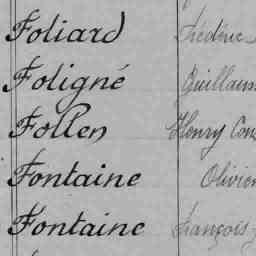 Foliard Frédéric
Foligné Guillaume
Follen Henry Con
Fontaine Olivier
Fontaine François